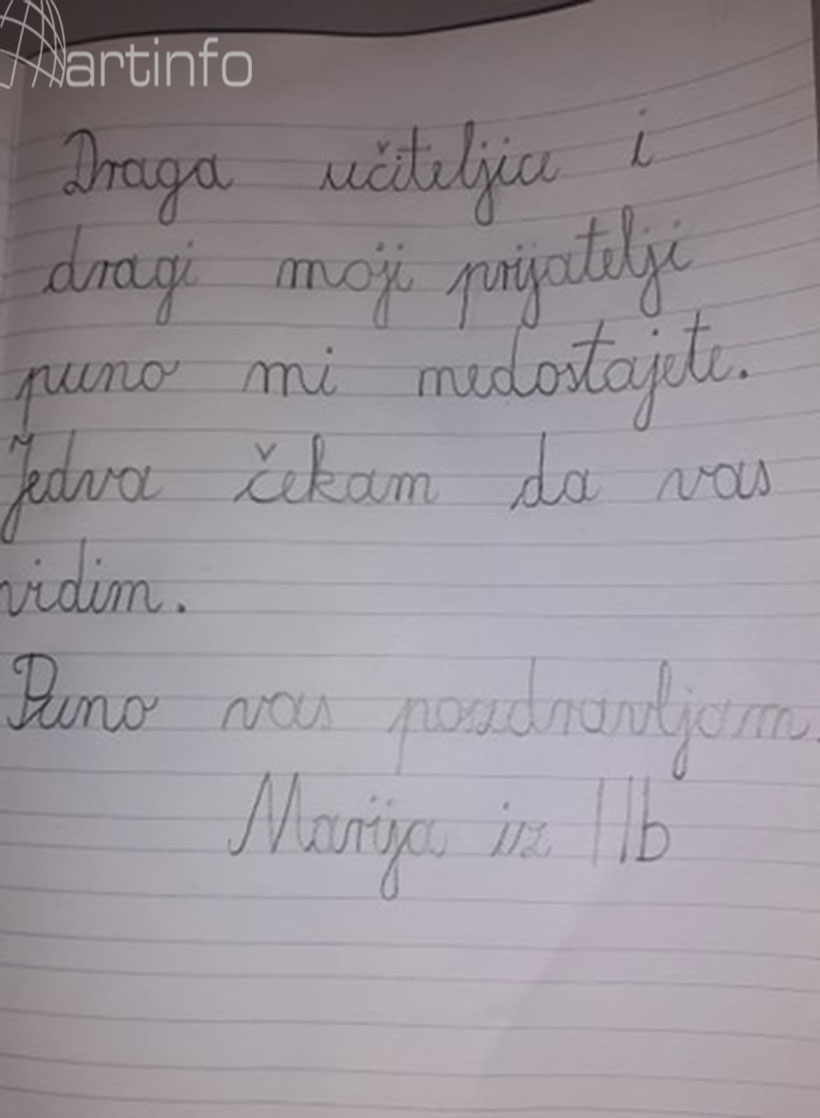 artinfo
Draga učiteljice i
dragi moji prijatelji
puno mi nedostajete.
Jedva čekam da vas
vidim.
Puno vas pozdravljam.
Marija iz IIb